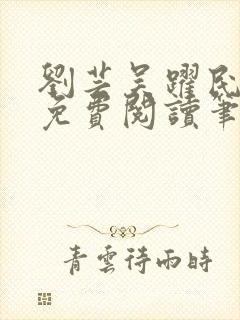 劉芸吴躍民
免費閱讀筆
青雲待雨時